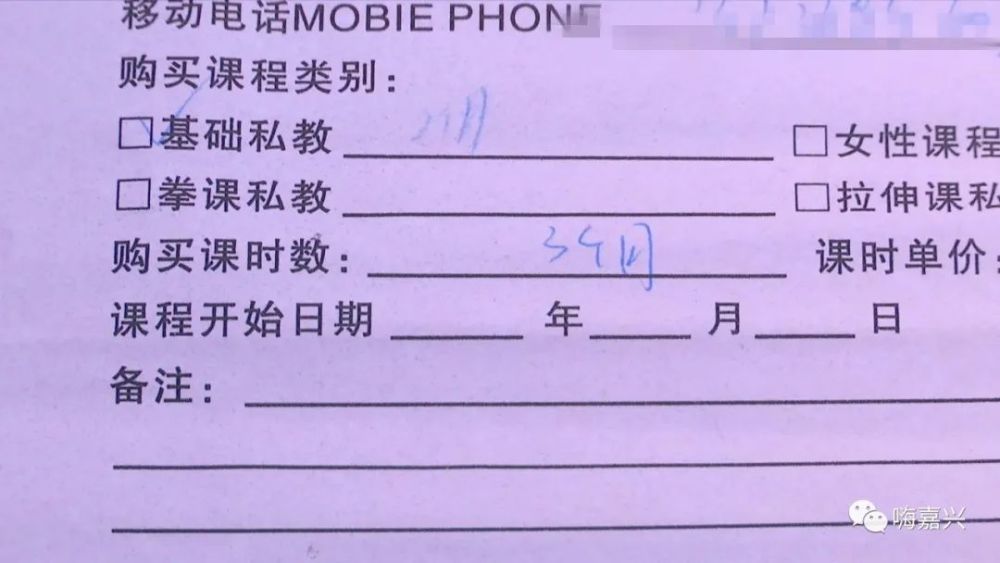 移动电话MOBIE PHONE
购买课程类别：
□基础私教 □女性课程
□拳课私教 □拉伸课私
购买课时数： 3个月 课时单价：
课程开始日期 年 月 日
备注：
嗨嘉兴